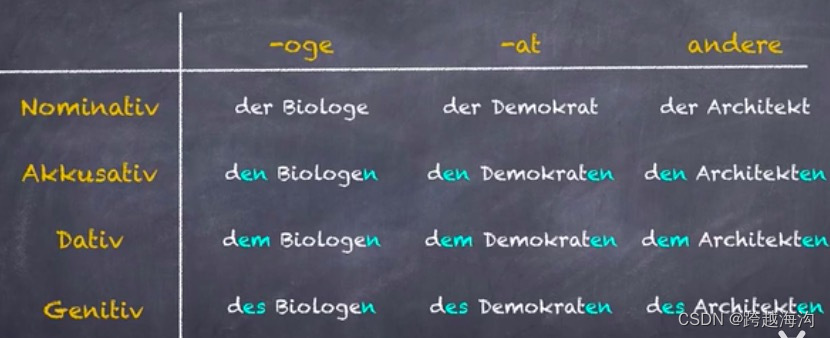 -oge -at andere
Nominativ der Biologe der Demokrat der Architekt
Akkusativ den Biologen den Demokraten den Architekten
Dativ dem Biologen dem Demokraten dem Architekten
Genitiv des Biologen des Demokraten des Architekten
CSDN @跨越海沟